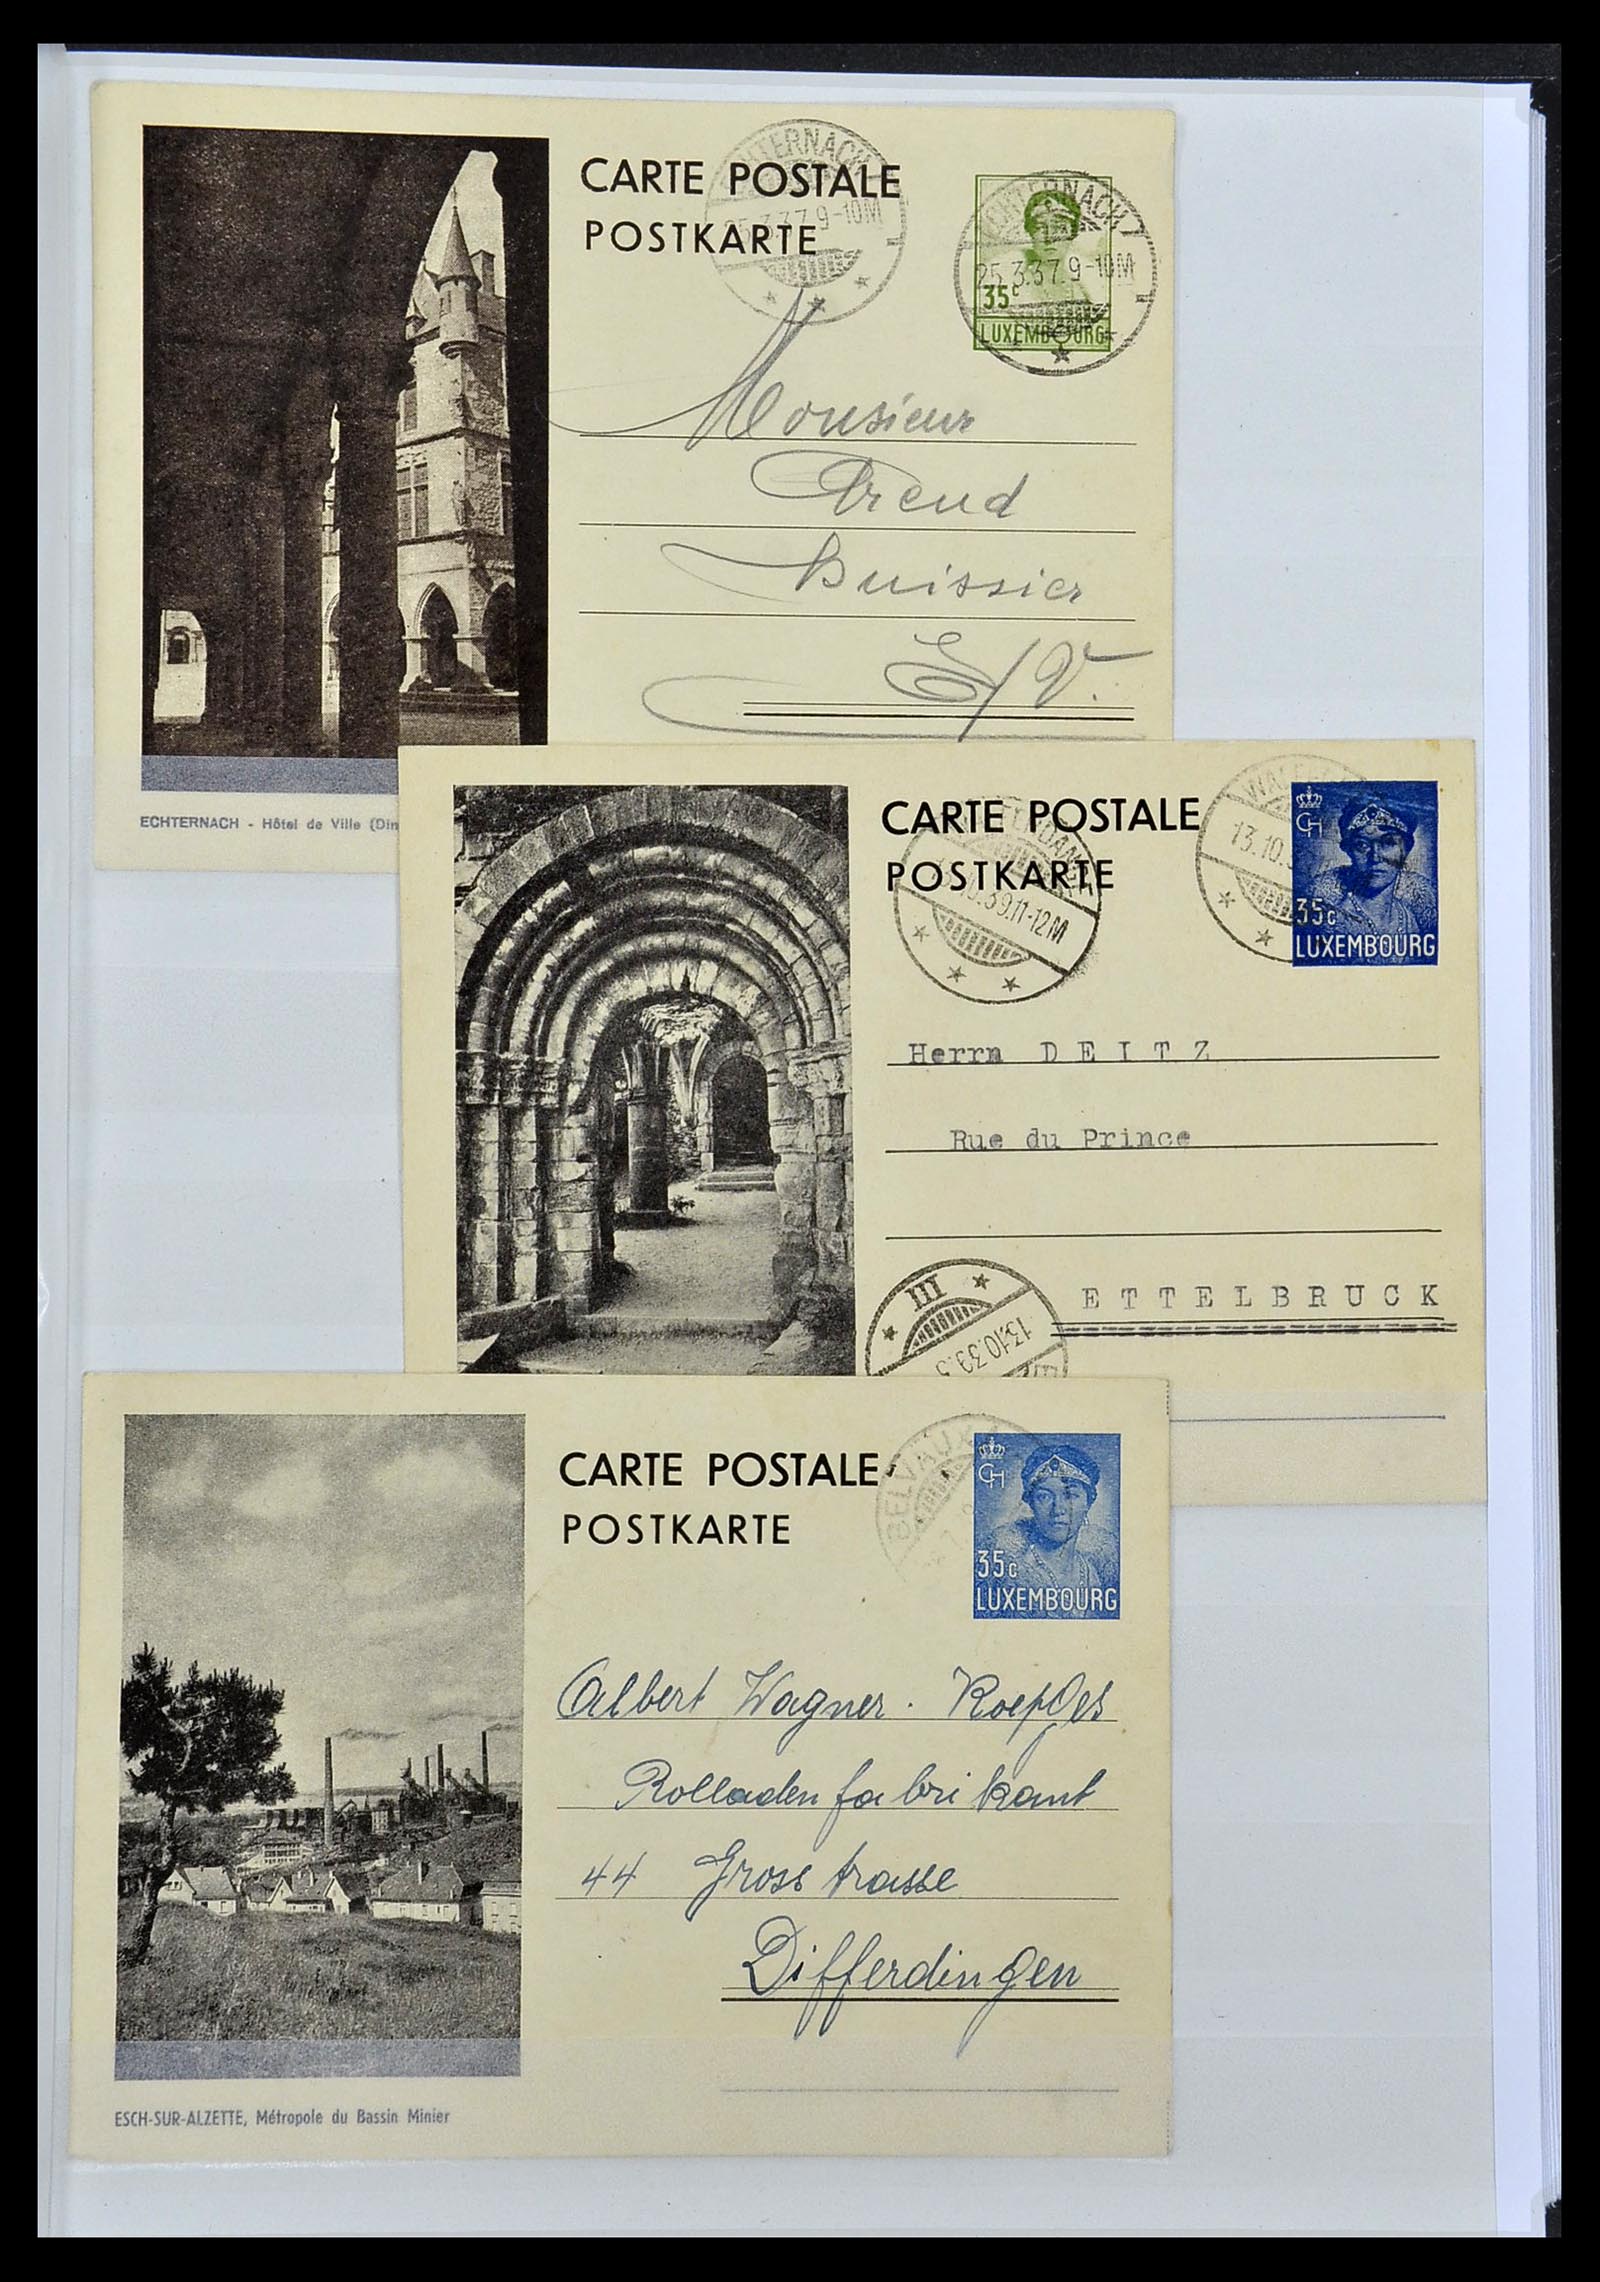 CARTE POSTALE
POSTKARTE
ECHTERNACH
25.3.37.9-10M
ECHTERNACH
25.3.37.9-10M
35c
LUXEMBOURG
Monsieur
Arend
Huissier
E/V.
ECHTERNACH - Hôtel de Ville (Din
CARTE POSTALE
POSTKARTE
10.39.11-12M
13.10.3
CH
35c
LUXEMBOURG
Herrn D E I T Z
Rue du Prince
E T T E L B R U C K
III
13.10.39.5
CARTE POSTALE
POSTKARTE
BELVAUX
CH
35c
LUXEMBOURG
Albert Wagner - Koepges
Rolladenfabrikant
44 Grosstrasse
Differdingen
ESCH-SUR-ALZETTE, Métropole du Bassin Minier